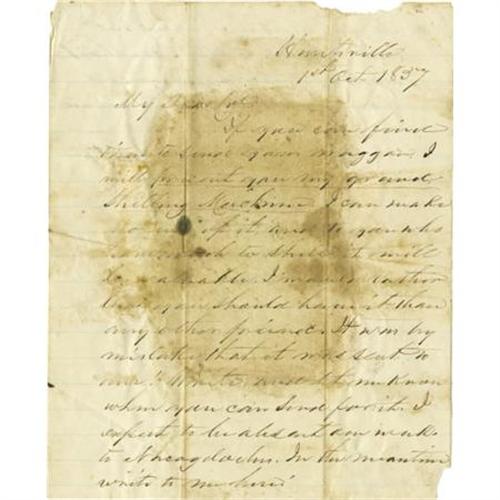 Huntsville
1st Oct 1837
My Dear Sir
If you can find
time to send your waggon, I
will present you my grand
Shelling Machine. I can make
no use of it, and to you who
have much to shell it will
be valuable. I would rather
that you should have it than
any other friend. It was by
mistake that it was sent to
me. Write and let me know
when you can send for it. I
expect to be absent one week
to Nacogdoches. In the meantime
write to me here